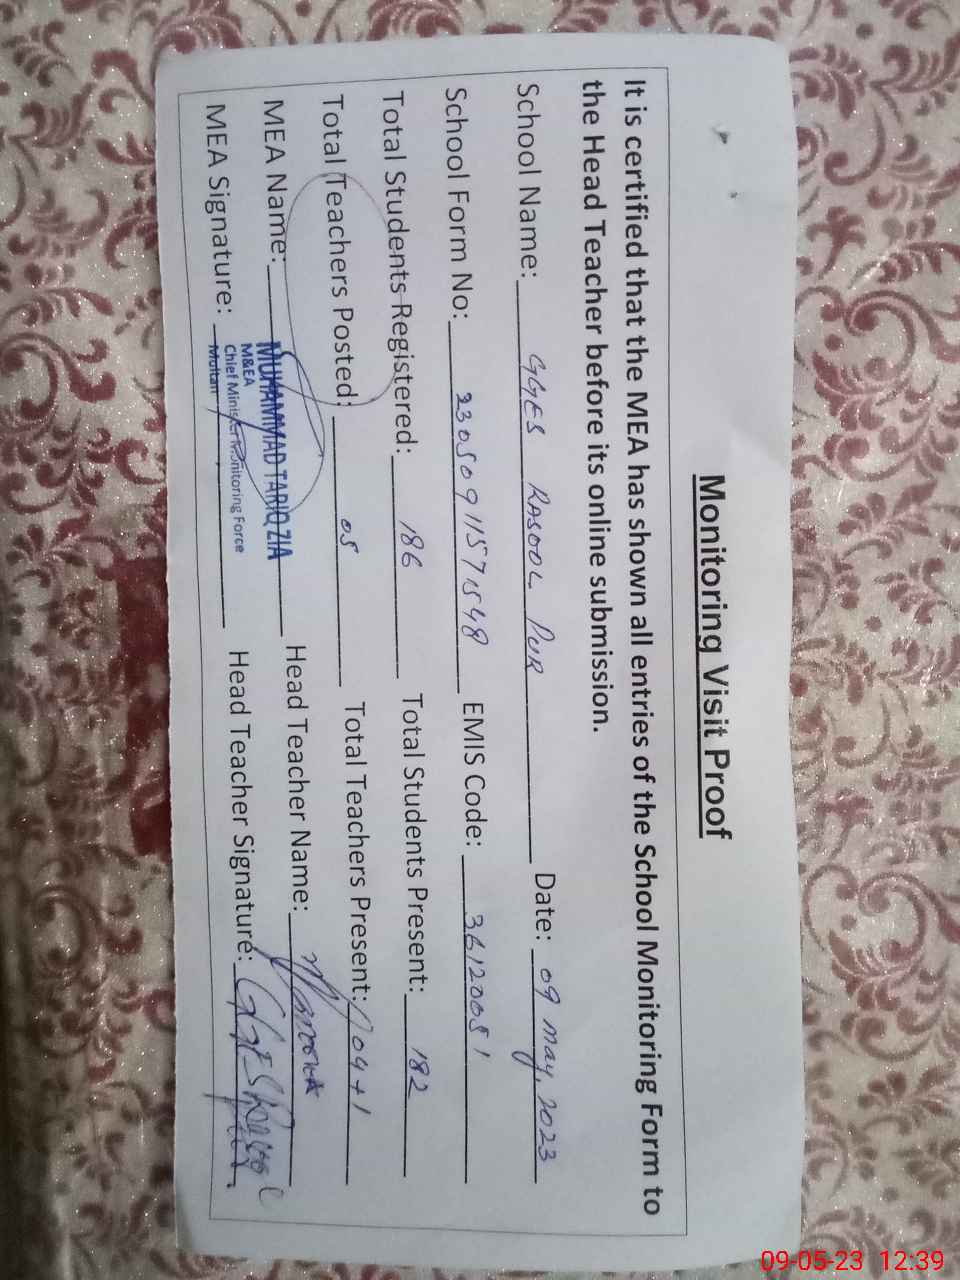 Monitoring Visit Proof
It is certified that the MEA has shown all entries of the School Monitoring Form to
the Head Teacher before its online submission.
School Name: GGES RASOOL PUR Date: 09 May, 2023
School Form No: 2305091157548 EMIS Code: 36120051
Total Students Registered: 186 Total Students Present: 182
Total Teachers Posted: 05 Total Teachers Present: 04+1
MEA Name: MUHAMMAD TARIQ ZIA Head Teacher Name:
M&EA
Chief Minister Monitoring Force
Multan
MEA Signature: Head Teacher Signature: GGES
09-05-23 12:39